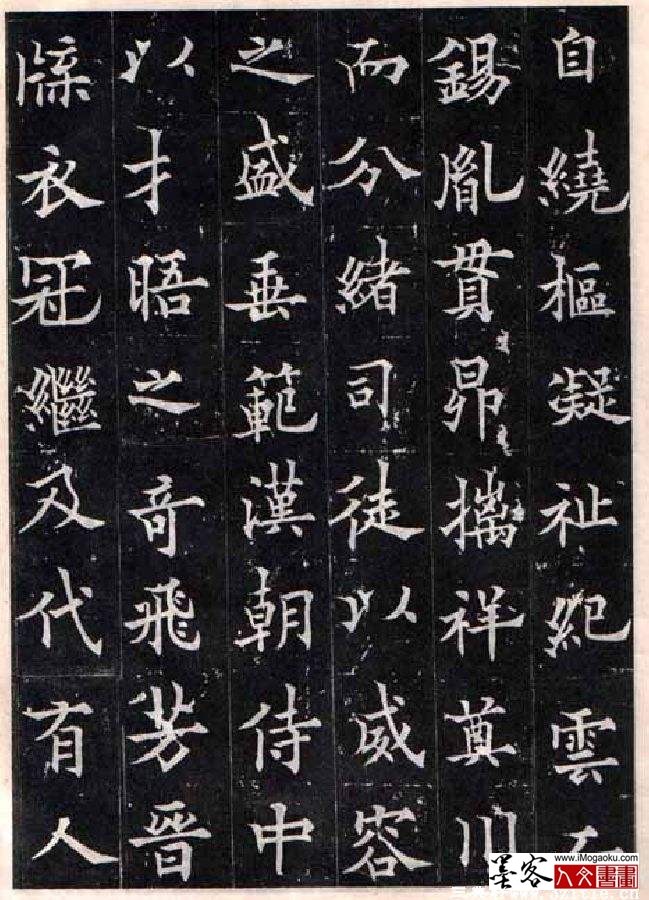 自繞樞凝祉紀雲
錫胤貫昴摛祥奠川
而分緒司徒以威容
之盛垂範漢朝侍中
以才晤之奇飛芳晉
牒衣冠繼及代有人
墨客
www.iMogaoku.com
人文書畫